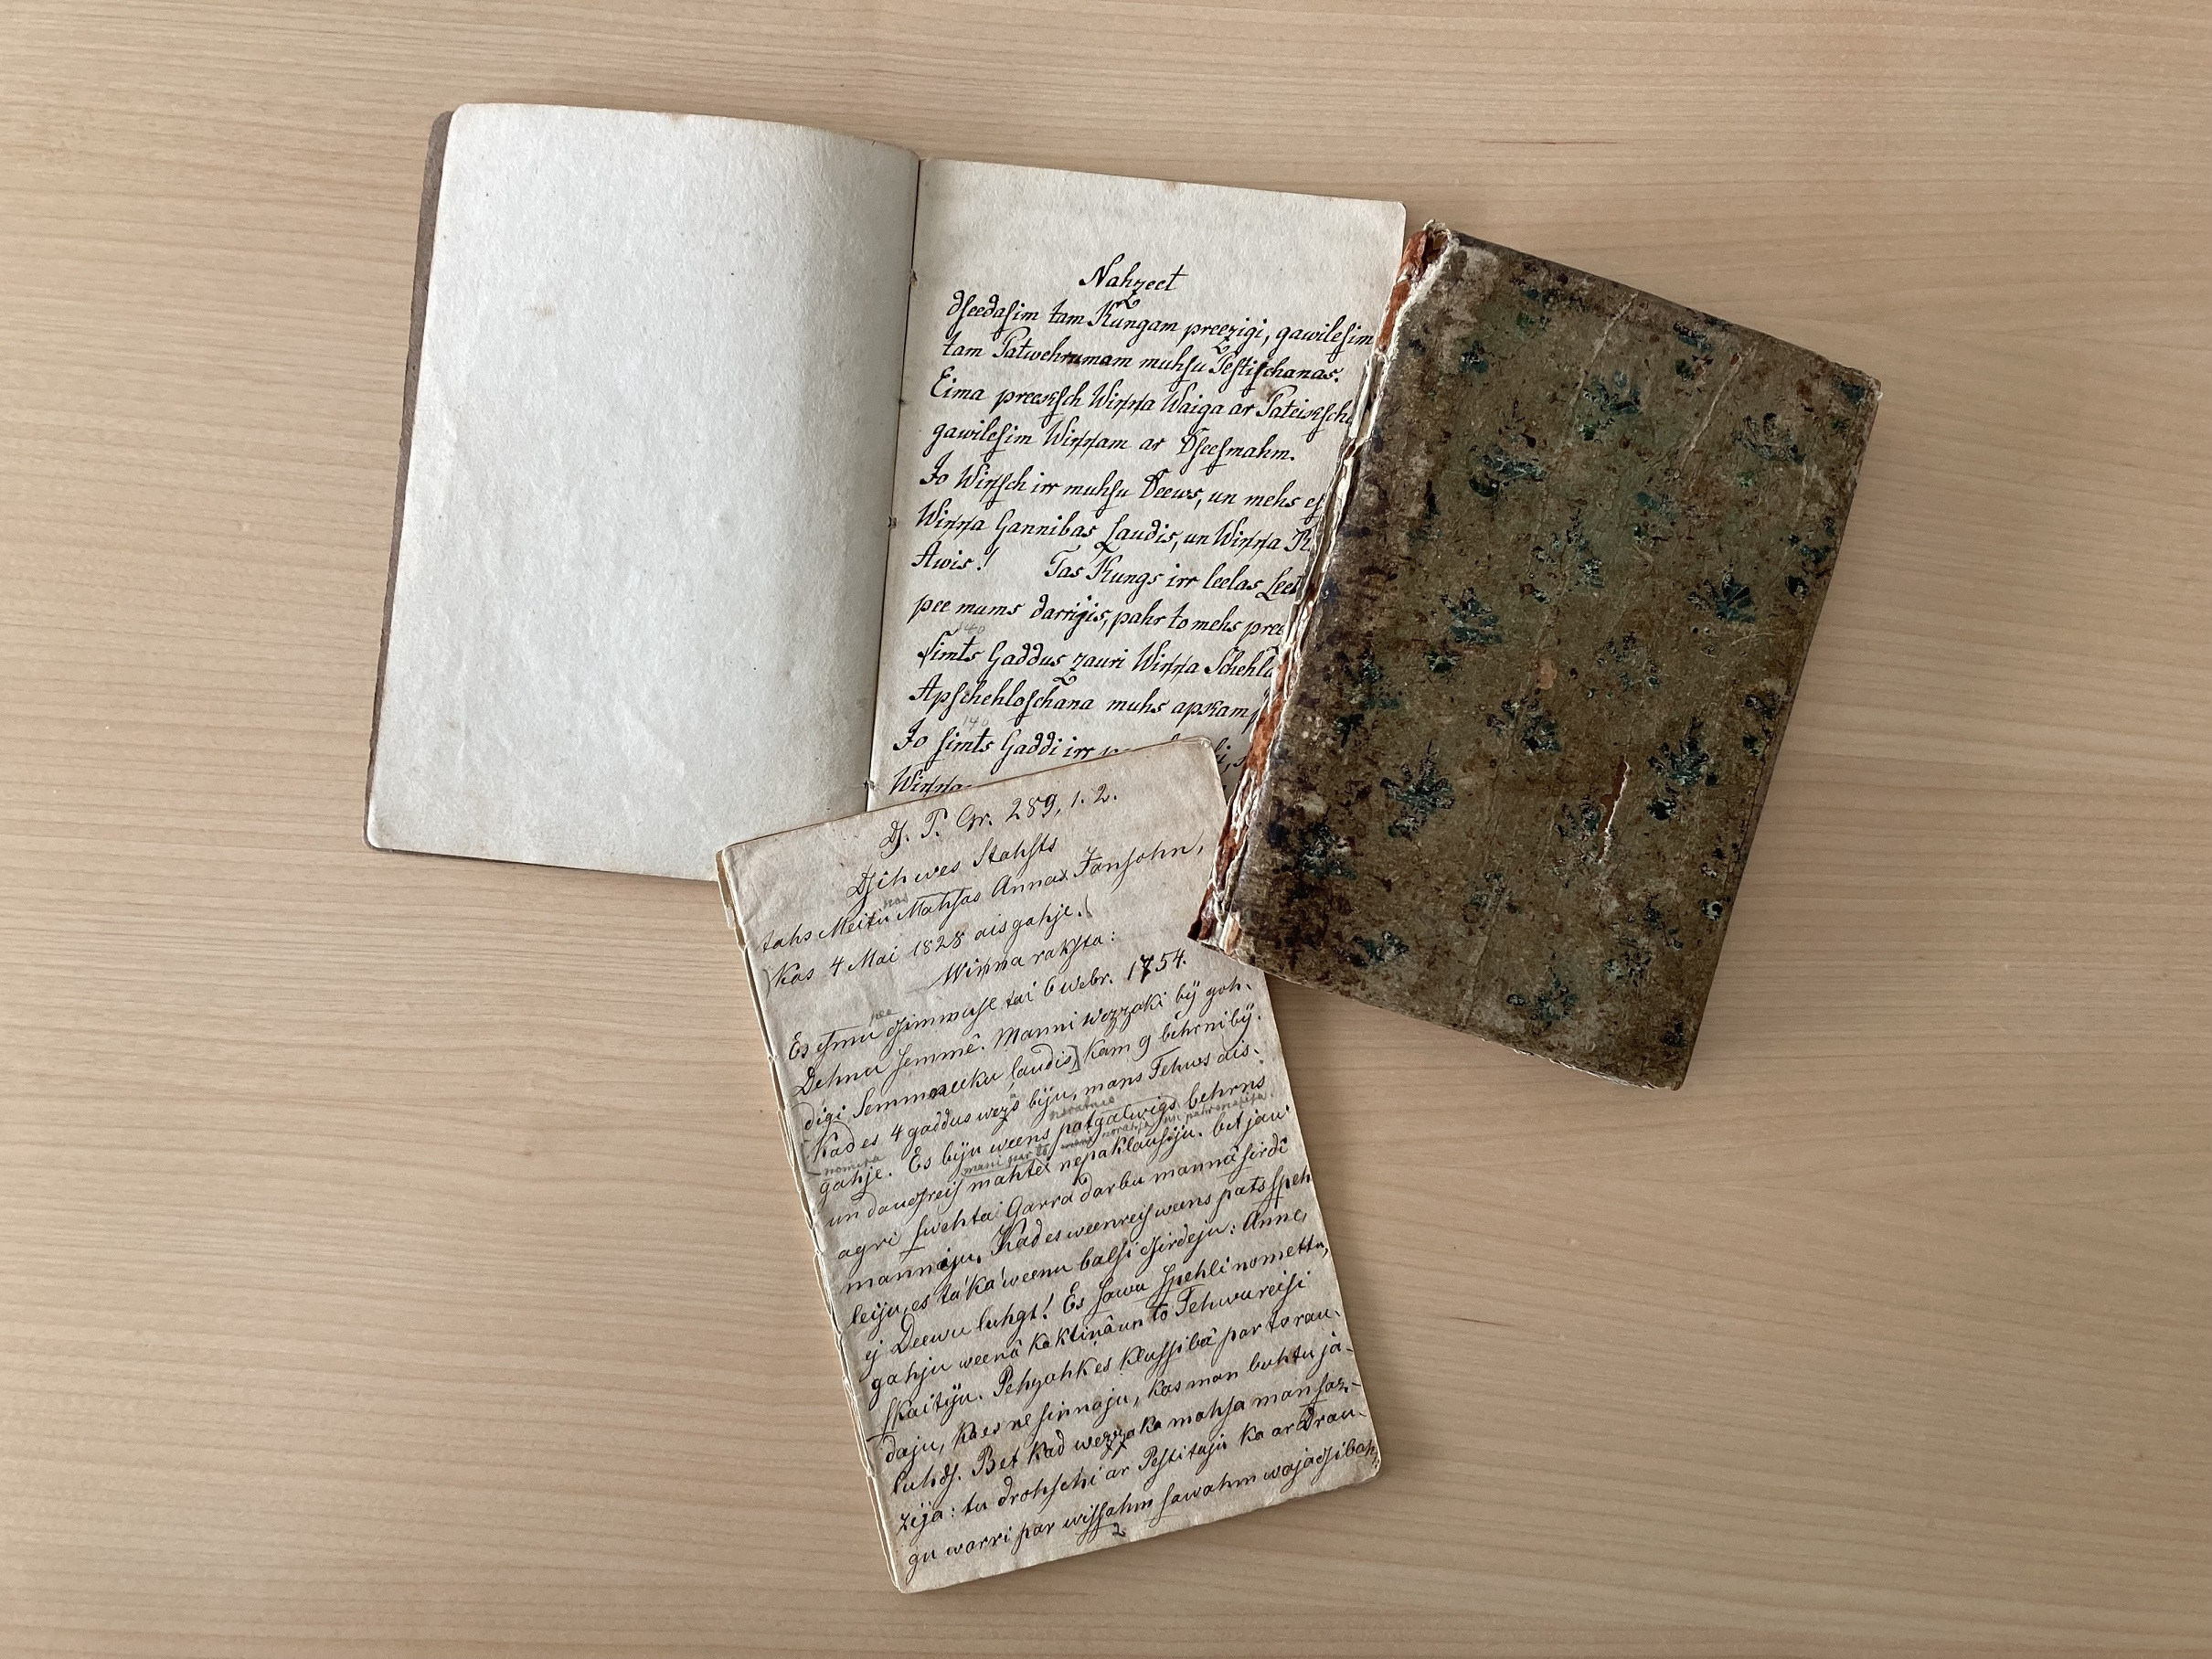 Nahzeet
dseedasim tam Kungam preezigi, gawilesim
tam Patwehrumam muhsu Pestischanas.
Eima preeksch Winna Waiga ar Pateiksch
gawilesim Winnam ar Dseesmahm.
Jo Winsch irr muhsu Deews, un mehs es
Winna Gannibas Laudis, un Winna K
Awis! Tas Kungs irr leelas Leet
pee mums darrijis, pahr to mehs pree
140
simts Gaddus zauri Winna Schehla
Apschehloschana muhs apkamp
140
Jo simts Gaddi irr
Winna
Dj. P. Gr. 289, 1. 2.
Dsihwes Stahsts
tahs Meitu Mahsas Annas Jansohn,
kas 4 Mai 1828 aisgahje.
Winna raksta:
Es esmu dsimmuse tai 6 Webr. 1754.
Dehnu semmê. Manni wezzaki bij goh-
digi Semmneeku laudis, kam 9 behrni bij.
Kad es 4 gaddus wezs biju, mans Tehws ais-
gahje. Es biju weens patgalwigs behrns
un daudsreis mahtei nepaklausiju. bet jau
agri swehtai Garra darbu mannâ sirdî
mannaju. Kad es weenreis weens pats speh
leiju, es tà kà weenu balsi dsirdeju: Anne,
ej Deewu luhgt! Es sawu spehli nomettu,
gahju weenâ kaktinâ un to Tehwu reisi
skaitiju. Pehzahk es klussibâ par to rau-
daju, ka es ne sinnaju, kas man buhtu ja-
luhds. Bet kad wezzaka mahsa man saz-
zija: tu drohschi ar Pestitaju ka ar Drau-
gu warri par wissahm sawahm wajadsibahm
2